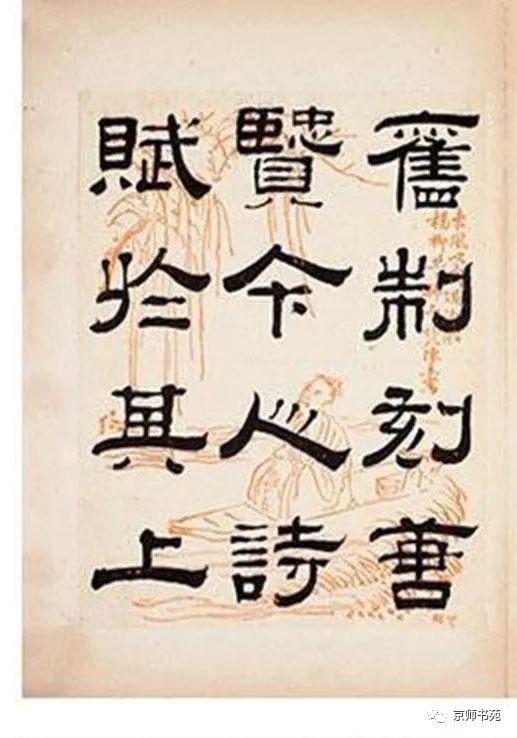 舊制刻唐
賢今人詩
賦於其上
京师书苑